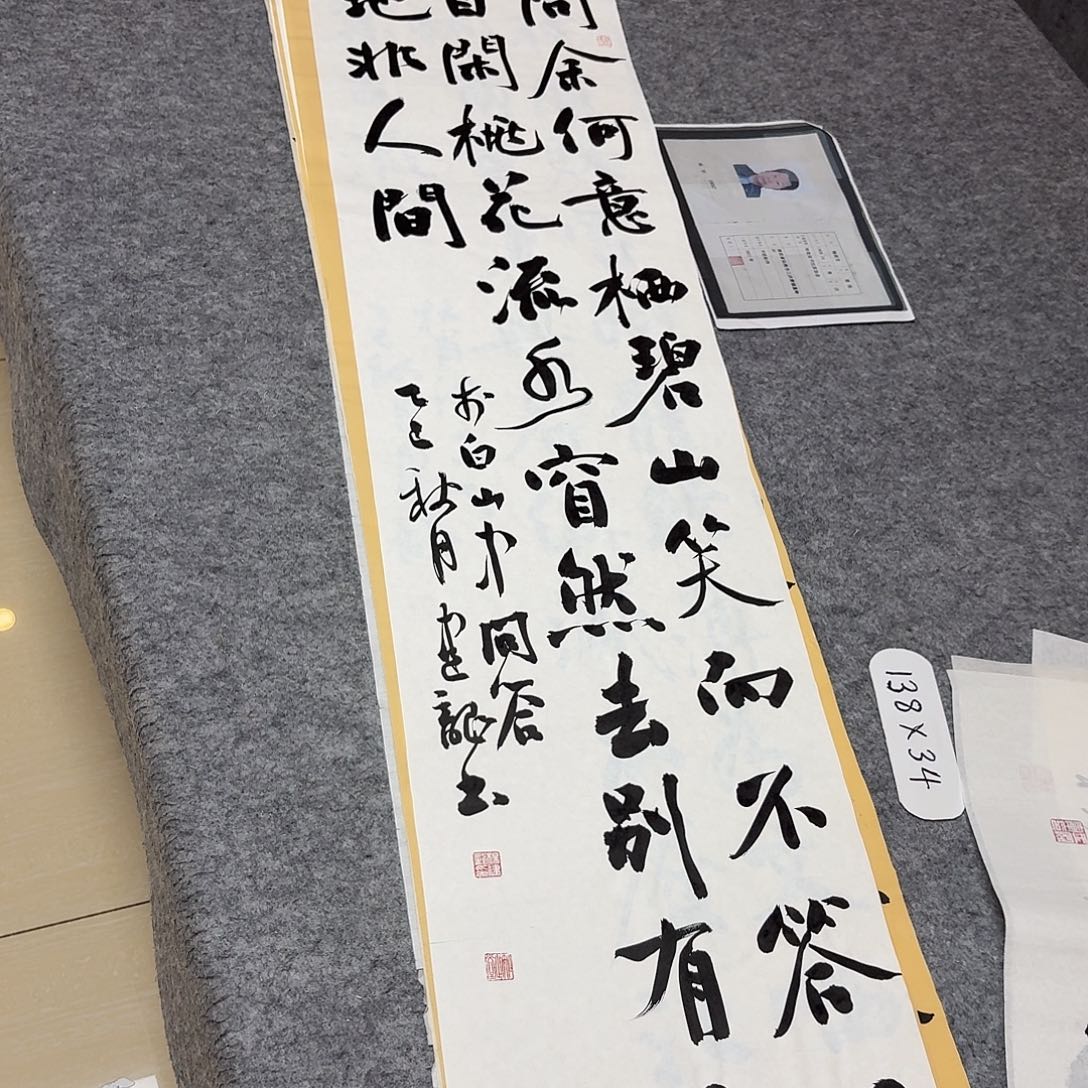 問余何意栖碧山笑而不答
自閑桃花流水窅然去別有
地非人間
李白山中问答
乙巳秋月建龍书
138×34